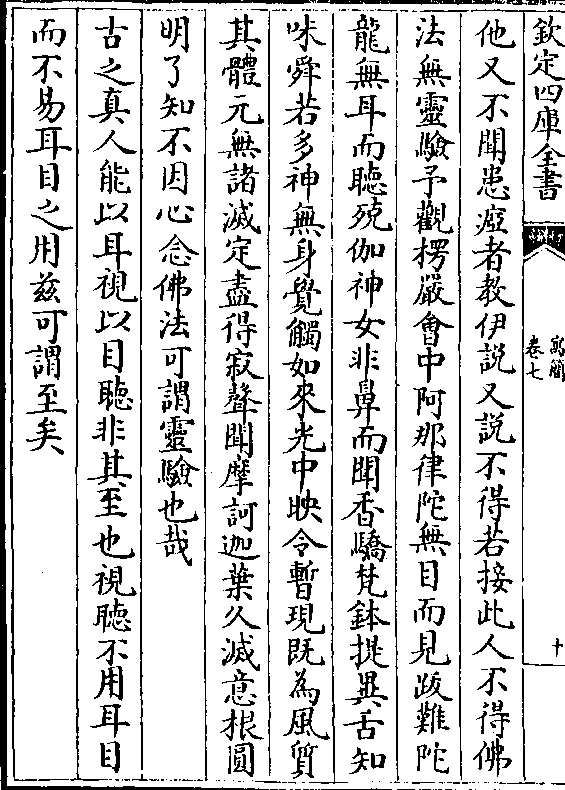 欽定四庫全書
寓簡
卷七
十
他又不聞患瘂者教伊説又説不得若接此人不得佛
法無靈驗予觀楞嚴會中阿那律陀無目而見跋難陀
龍無耳而聽殑伽神女非鼻而聞香驕梵鉢提異舌知
味舜若多神無身覺觸如來光中映令暫現既為風質
其體元無諸滅定盡得寂聲聞摩訶迦葉久滅意根圓
明了知不因心念佛法可謂靈驗也哉
古之真人能以耳視以目聽非其至也視聽不用耳目
而不易耳目之用兹可謂至矣